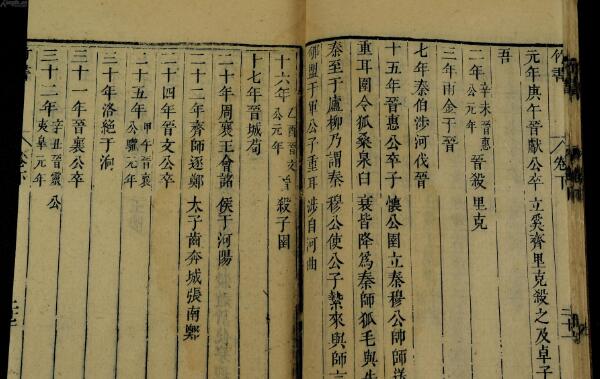 竹書
卷下
元年庚午晉獻公卒立奚齊里克殺之及卓子
吾
二年辛未晉惠公元年晉殺里克
三年雨金于晉
七年秦伯涉河伐晉
十五年晉惠公卒子懷公圉立秦穆公帥師送
重耳圍令狐桑泉臼衰皆降爲秦師狐毛與先
秦至于廬柳乃謂秦穆公使公子縶來與師言
郇盟于軍公子重耳涉自河曲
十六年乙酉晉文公元年殺子圉
十七年晉城荀
二十年周襄王會諸侯于河陽
二十二年齊師逐鄭太子齒奔城張南鄭
二十四年晉文公卒
二十五年甲午晉襄公驩元年
三十年洛絕于泂
三十一年晉襄公卒
三十二年辛丑晉靈公夷皐元年